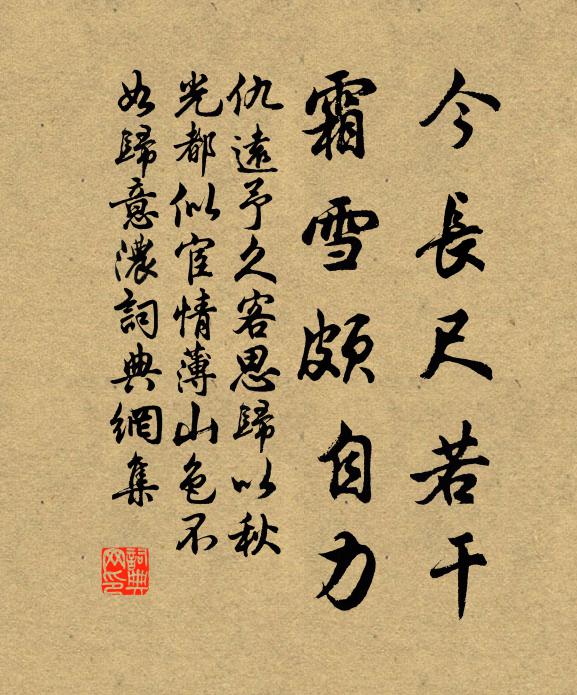 今長尺若干
霜雪頗自力
仇遠予久客思歸以秋
光都似宦情薄山色不
如歸意濃詞典網集
詞典网印